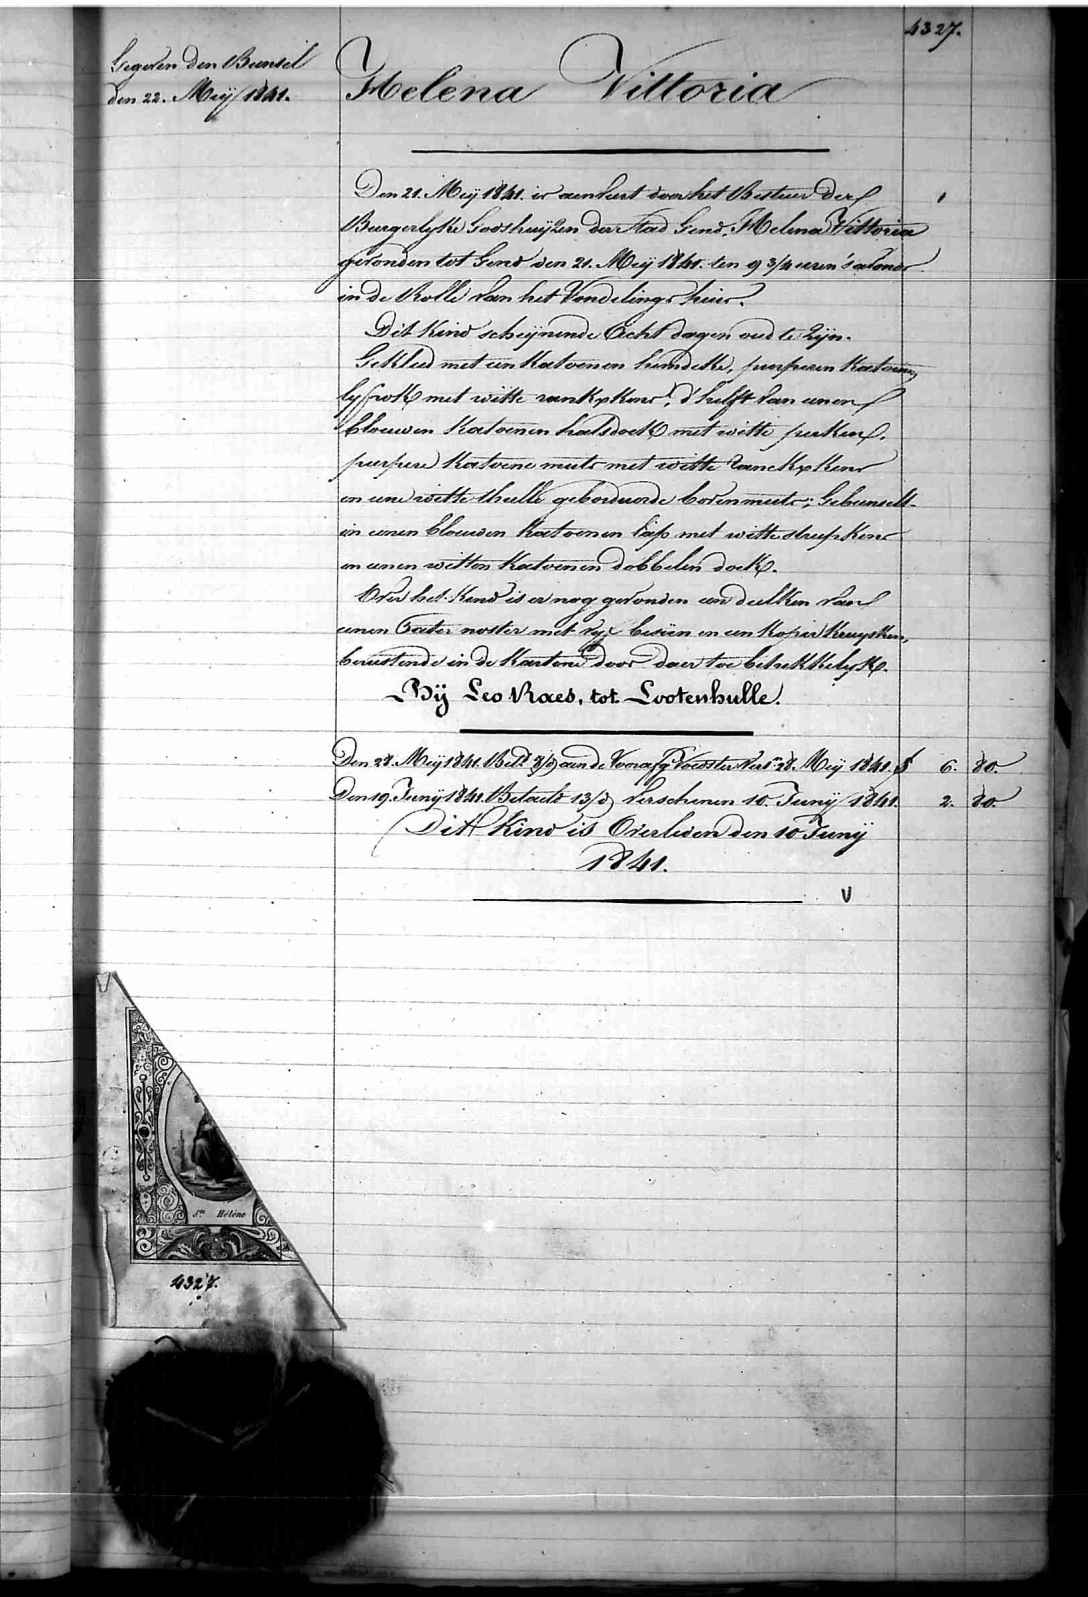 4327.
Gegeven den Bunsel
den 22. Meij 1841.
Helena Vittoria
Den 21. Meij 1841. is aenveert door het Bestuer der
Burgerlyke Godshuijzen der Stad Gend, Helena Vittoria
gevonden tot Gend den 21. Meij 1841. ten 9 3/4 uren 's avonds
in de Rolle van het Vondelings huis.
Dit Kind scheijnende Acht dagen oud te Zijn.
Gekleed met een Katoenen hemdeke, purperen Katoenen
lyfrok met witte rankxkens, d'helft van eenen
blauwen Katoenen halsdoek met witte perken,
purpere Katoene muts met witte ranckxkens
en eene witte thulle geborduerde bovenmuts; Gebunselt
in eenen blauwen Katoenen lap met witte streepkens
en eenen witten Katoenen dobbelen doek.
Over het Kind is er nog gevonden een deelken van
eenen Pater noster met vyf besiën en een Koper Kruysken,
berustende in de Kartons door daer toe betrekkelyk.
Bij Leo Raes, tot Lootenhulle.
Den 28. Meij 1841. Bet. aen de Voorafg. Voedster Vers. 28. Meij 1841. f 6. 80.
Den 19. Junij 1841. Betaeld 13/d Verschenen 10 Junij 1841. 2. 80.
Dit Kind is Overleden den 10 Junij
1841.
V
Ste. Hélène
4327.